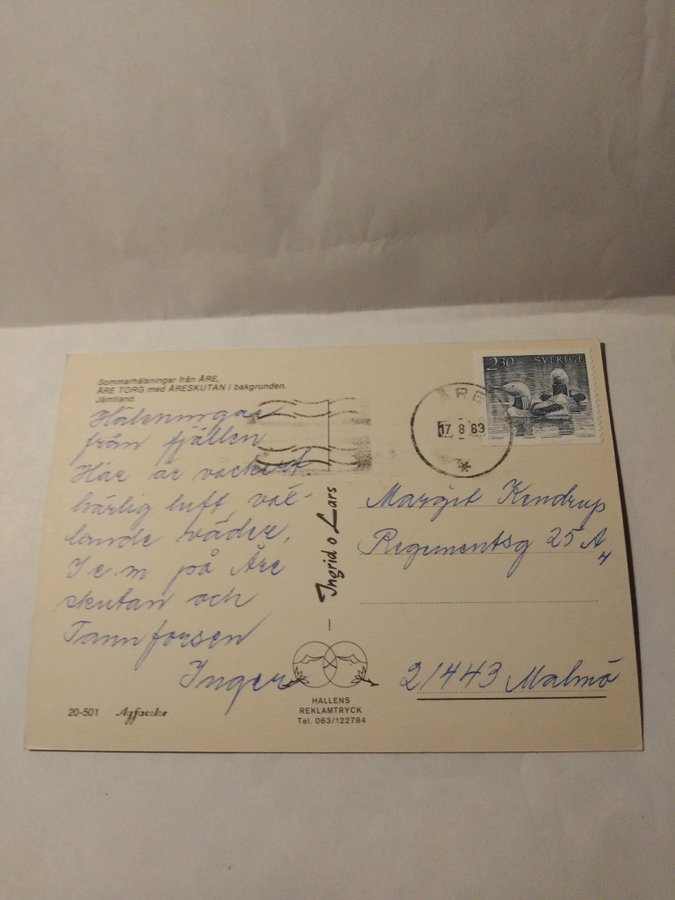 Sommarhälsningar från ÅRE,
ÅRE TORG med ÅRESKUTAN i bakgrunden.
Jämtland.
Hälsningar
från fjällen
Här är vackert
härlig luft, väx-
lande väder,
I e.m på Åre
skutan och
Tannforsen
Inger
20-501 Agfacolor
Ingrid o Lars
HALLENS
REKLAMTRYCK
Tel. 063/122784
2.30 SVERIGE
ÅRE
17.8.83
Margit Kendrup
Regementsg 25 A
21443 Malmö